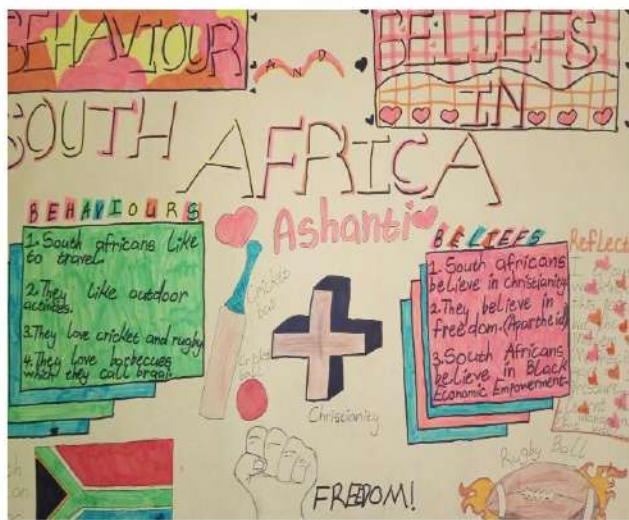 BEHAVIOUR
AND
BELIEFS
IN
SOUTH AFRICA
Ashanti
BEHAVIOURS
1. South africans like
to travel.
2. They like outdoor
3. They love cricket and rugby
4. They love barbecues
which they call braai.
Cricket
ball
Christianity
BELIEFS
1. South africans
believe in christianity.
2. They believe in
freedom. (Apartheid)
3. South Africans
believe in Black
Economic Empowerment.
Reflect
I
FREEDOM!
Rugby Ball